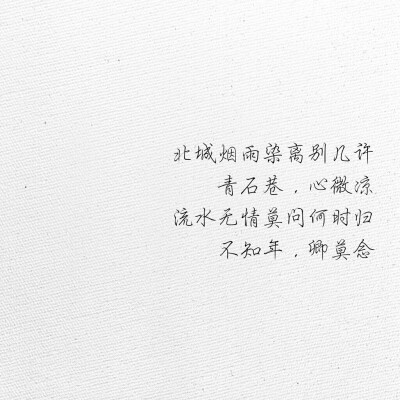 北城烟雨染离别几许
青石巷，心微凉
流水无情莫问何时归
不知年，卿莫念